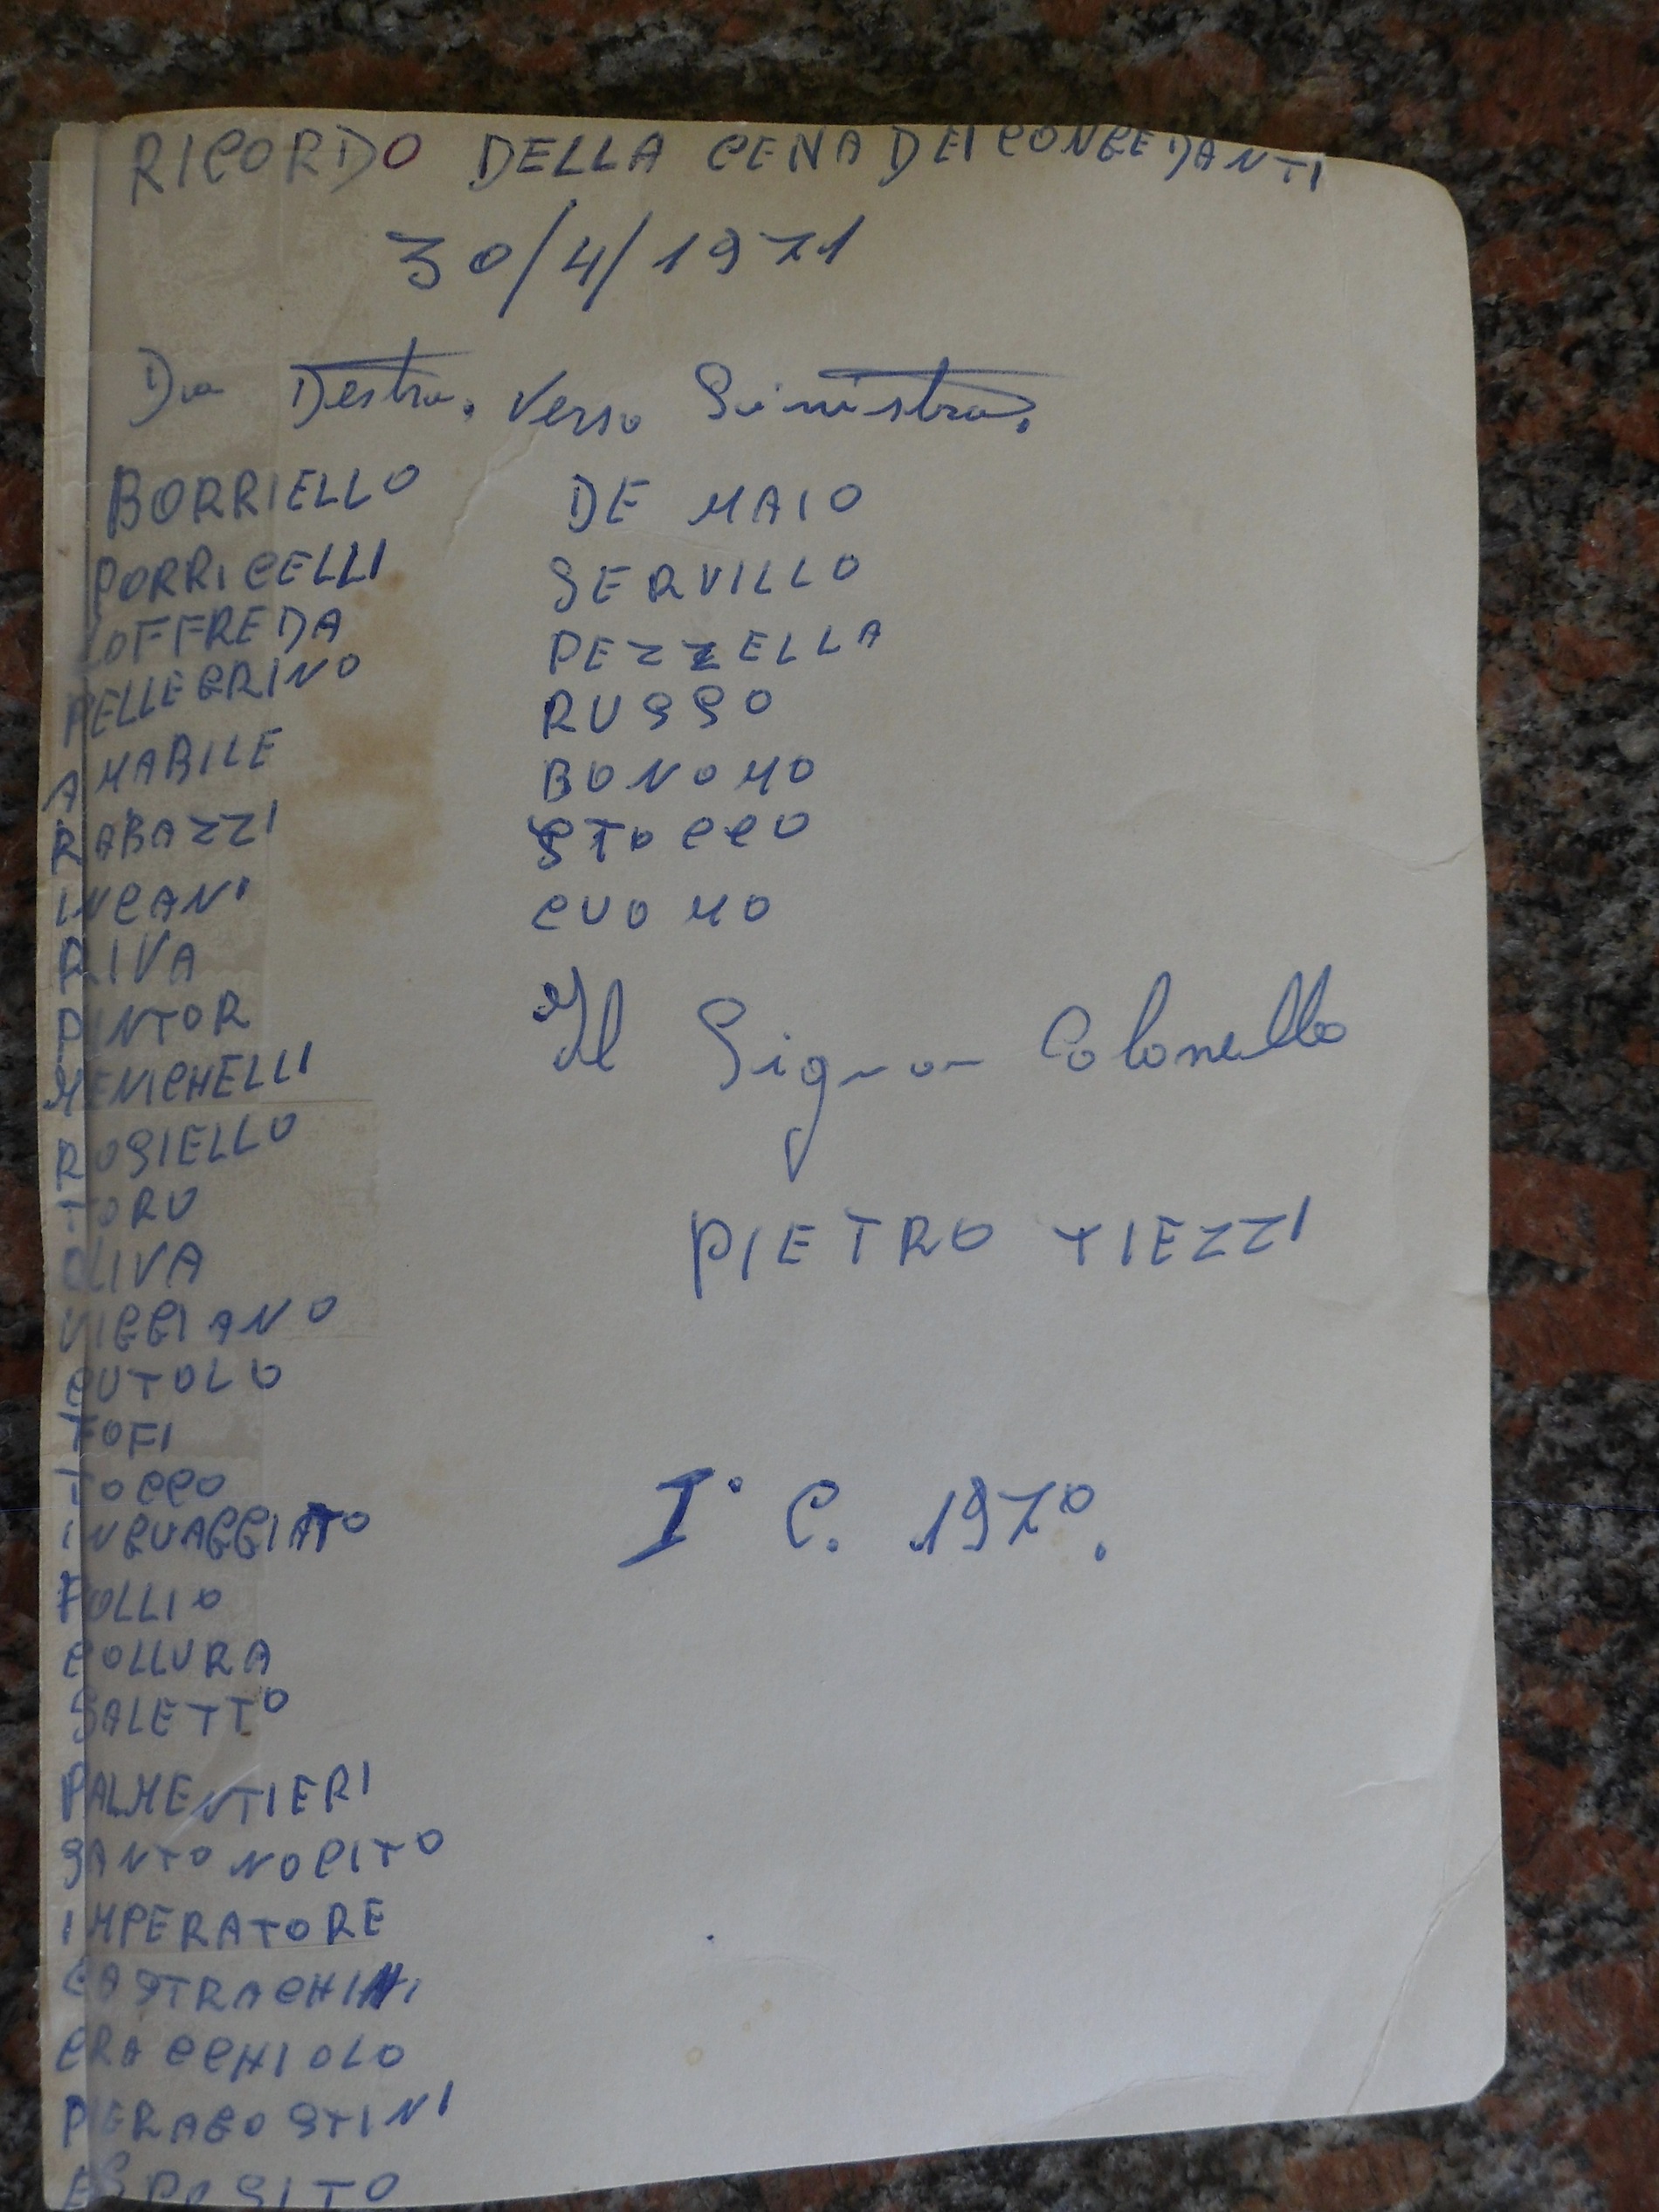 RICORDO DELLA CENA DEI CONGEDANTI
30/4/1971
Da Destra. Verso Sinistra.
BORRIELLO
PORRICELLI
LOFFREDA
PELLEGRINO
AMABILE
RABAZZI
INCANI
RIVA
PINTOR
MENICHELLI
ROSIELLO
TORU
OLIVA
VIGGIANO
CUTOLO
FOFI
TOCCO
INGUAGGIATO
FOLLIO
COLLURA
SALETTO
PALMENTIERI
SANTONOCITO
IMPERATORE
CASTRACHINI
CRACCHIOLO
PIERAGOSTINI
ESPOSITO
DE MAIO
SERVILLO
PEZZELLA
RUSSO
BONOMO
STOCCO
CUOMO
Il Signor Colonello
PIETRO TIEZZI
I° C. 1970.